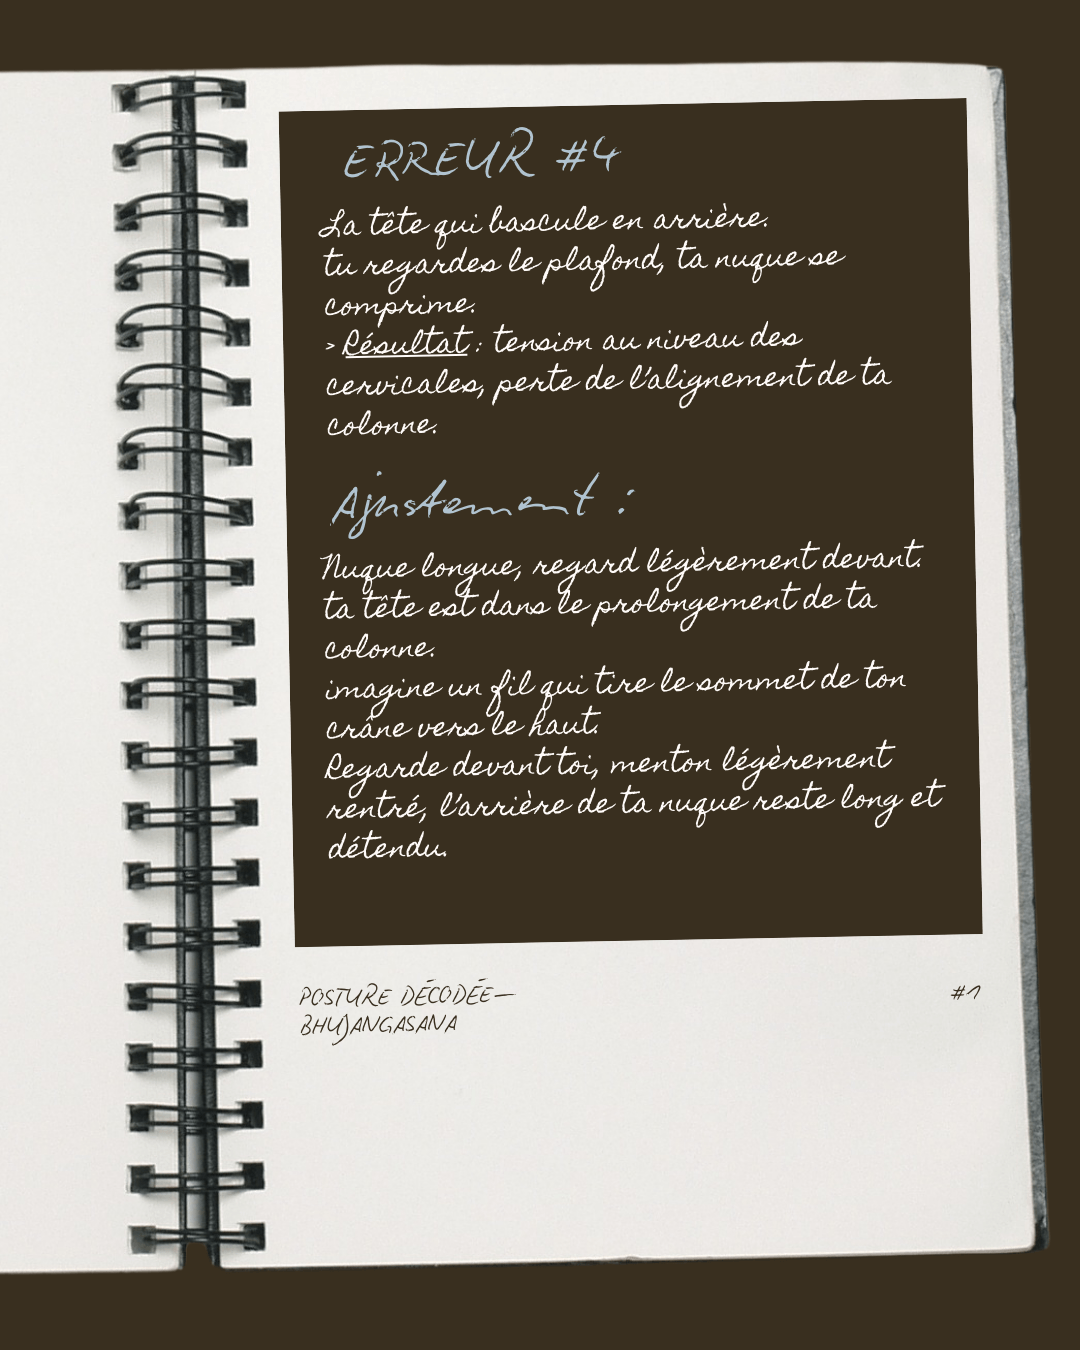 ERREUR #4
La tête qui bascule en arrière.
tu regardes le plafond, ta nuque se
comprime.
> Résultat : tension au niveau des
cervicales, perte de l'alignement de ta
colonne.
Ajustement :
Nuque longue, regard légèrement devant.
ta tête est dans le prolongement de ta
colonne.
imagine un fil qui tire le sommet de ton
crâne vers le haut.
Regarde devant toi, menton légèrement
rentré, l'arrière de ta nuque reste long et
détendu.
POSTURE DÉCODÉE—
BHUJANGASANA
#1